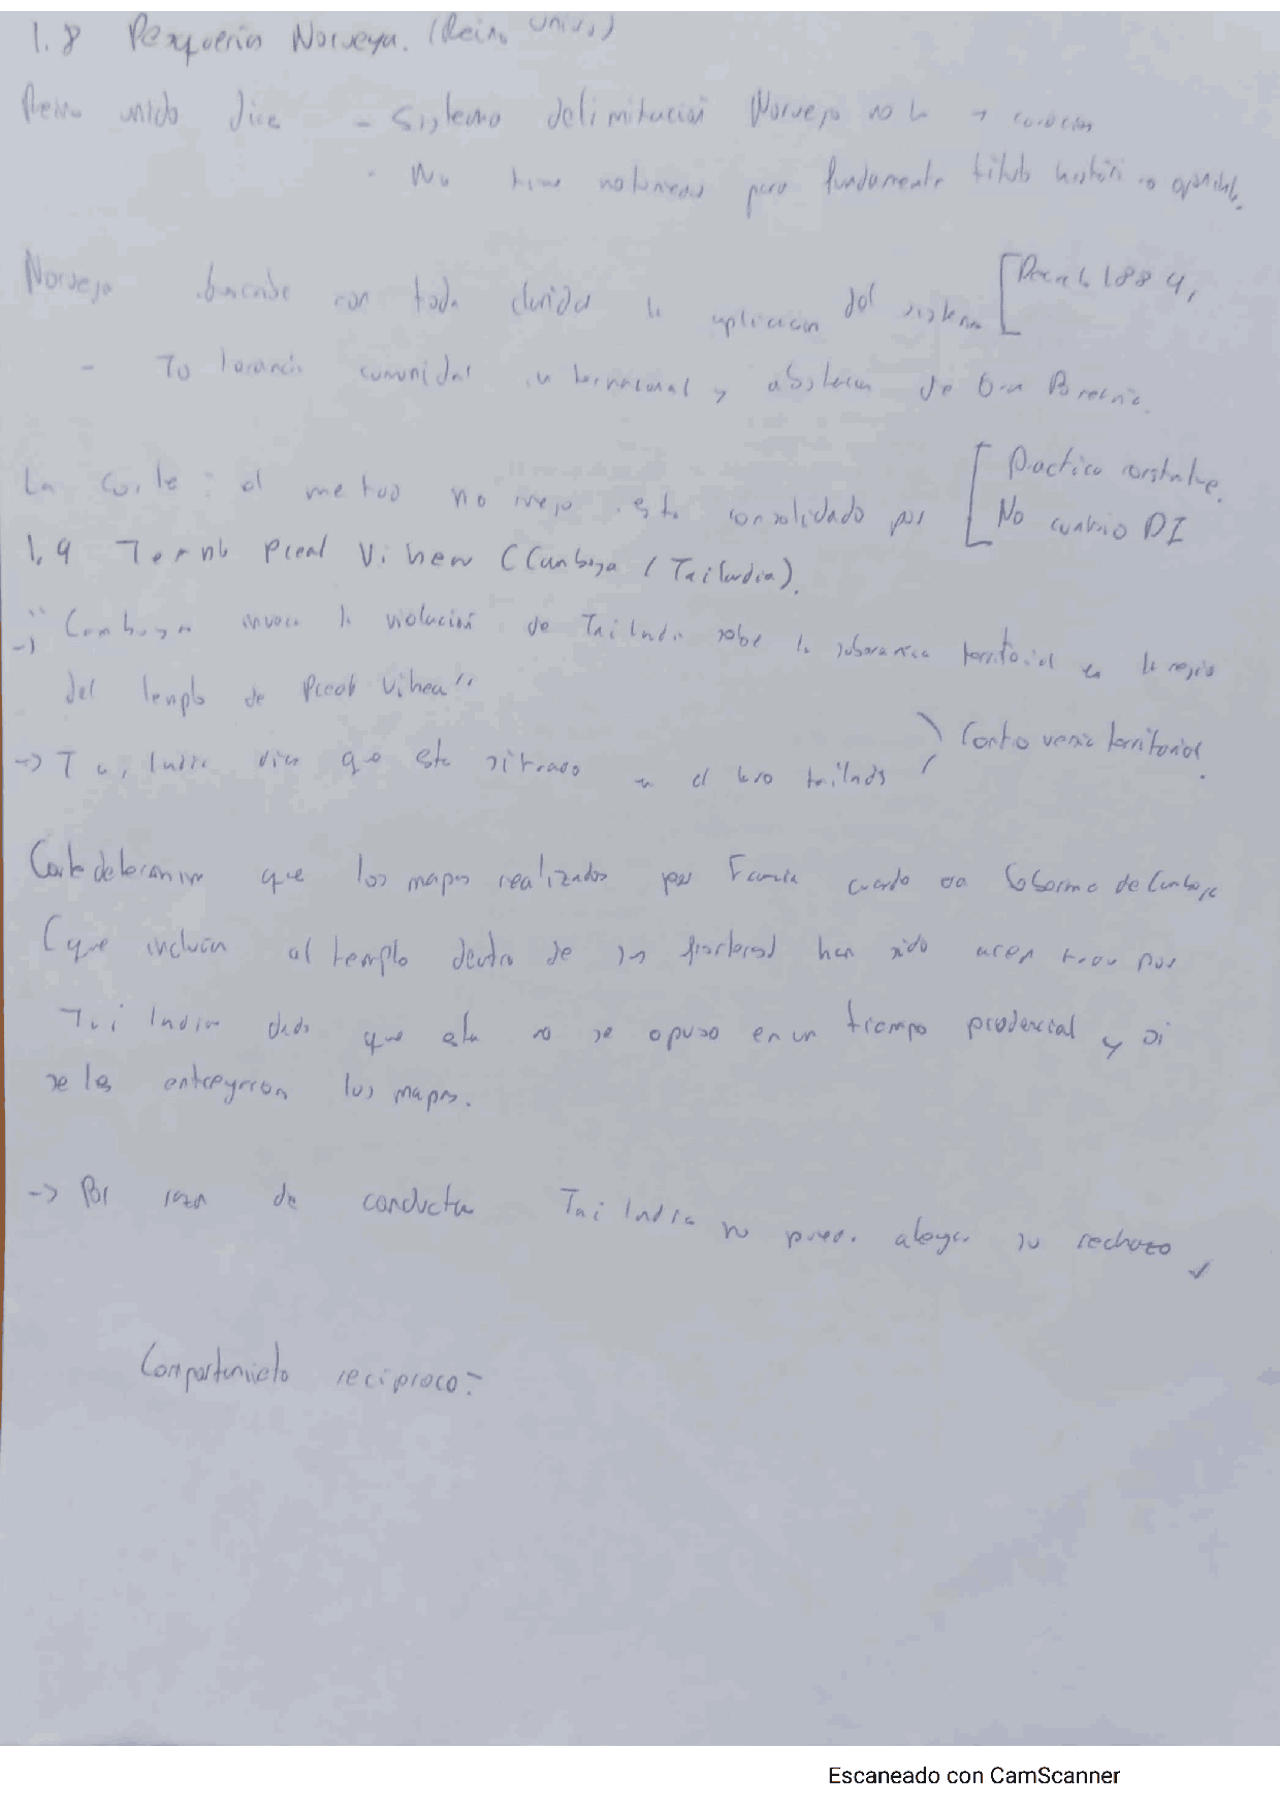 1.8 Pesquerías Noruega. (Reino Unido)
Reino unido dice - Sistema delimitación Noruego no lo conocían
- No tiene notoriedad para fundamento título histórico oponible.
Noruega con toda claridad la aplicación del sistema [Decreto 1884,
- Tolerancia comunidad internacional y abstención de Gran Bretaña.
La Corte: el metodo noruego esta consolidado por [Practica constante.
No contrario DI
1.9 Templo Preah Vihear (Camboya / Tailandia).
→ "Camboya invoca la violación de Tailandia sobre la soberania territorial en la region
del templo de Preah Vihea"
→ Tailandia dice que esta situado en el lado tailandes } Controversia territorial.
Corte determina que los mapas realizados por Francia cuando era Gobierno de Camboya
(que incluian al templo dentro de sus fronteras) han sido por
Tailandia dado que esta no se opuso en un tiempo prudencial y si
se les entregaron los mapas.
→ Por razon de conducta Tailandia no puede alegar su rechazo
Comportamiento reciproco:
Escaneado con CamScanner